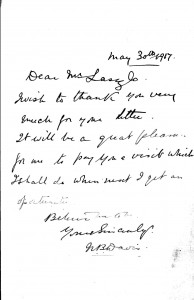 May 30th 1917.
Dear Mr Laszlo.
I wish to thank you very
much for your letter.
It will be a great pleasure
for me to pay you a visit which
I shall do when next I get an
opportunity
Believe me
Yours Sincerely,
Davis.